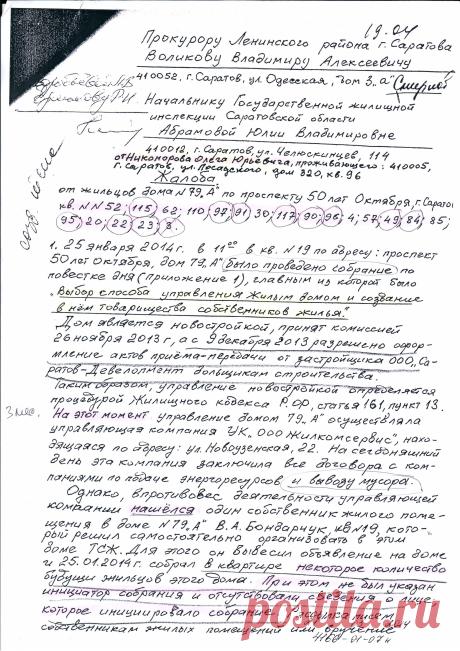 19.04
Прокурору Ленинского района г. Саратова
Воликову Владимиру Алексеевичу
410052, г. Саратов, ул. Одесская, дом 3 „а"
Начальнику Государственной жилищной
инспекции Саратовской области
Абрамовой Юлии Владимировне
410012, г. Саратов, ул. Челюскинцев, 114
от Никонорова Олега Юрьевича, проживающего: 410005,
г. Саратов, ул. дом 320, кв. 96
Жалоба
от жильцов дома N 79 „А" по проспекту 50 лет Октября, г. Саратов
кв. N N 52; 115; 62; 110; 97; 91; 30; 117; 90; 96; 4; 57; 49; 84; 85;
95; 20; 22; 23; 8.
1. 25 января 2014г. в 11⁰⁰ в кв. N 19 по адресу: проспект
50 лет Октября, дом 79 „А" было проведено собрание по
повестке дня (приложение 1), главным из которой было
„Выбор способа управления жилым домом и создание
в нём товарищества собственников жилья".
Дом является новостройкой, принят комиссией
26 ноября 2013г, а с 9 декабря 2013 разрешено офор-
мление актов приёма-передачи от застройщика ООО „Са-
ратов-Девелопмент дольщикам строительства.
Таким образом, управление новостройкой определяется
процедурой Жилищного кодекса Р.ФР, статья 161, пункт 13.
3 мес.
На этот момент управление домом 79 „А" осуществляла
управляющая компания УК „ООО Жилкомсервис", нахо-
дящаяся по адресу: ул. Новоузенская, 22. На сегодняшний
день эта компания заключила все договора с ком-
паниями по подаче энергоресурсов и вывозу мусора.
Однако, в противовес деятельности управляющей
компании нашёлся один собственник жилого поме-
щения в доме N 79 „А" В.А. Бондарчук, кв N 19, кото-
рый решил самостоятельно организовать в этим
доме ТСЖ. Для этого он вывесил объявление на доме
и 25.01.2014г. собрал в квартире некоторое количество
будущих жильцов этого дома. При этом не был указан
инициатор собрания и отсутствовали сведения о лице,
которое инициировало собрание.
собственникам жилых помещений или вручение
posteta.ru